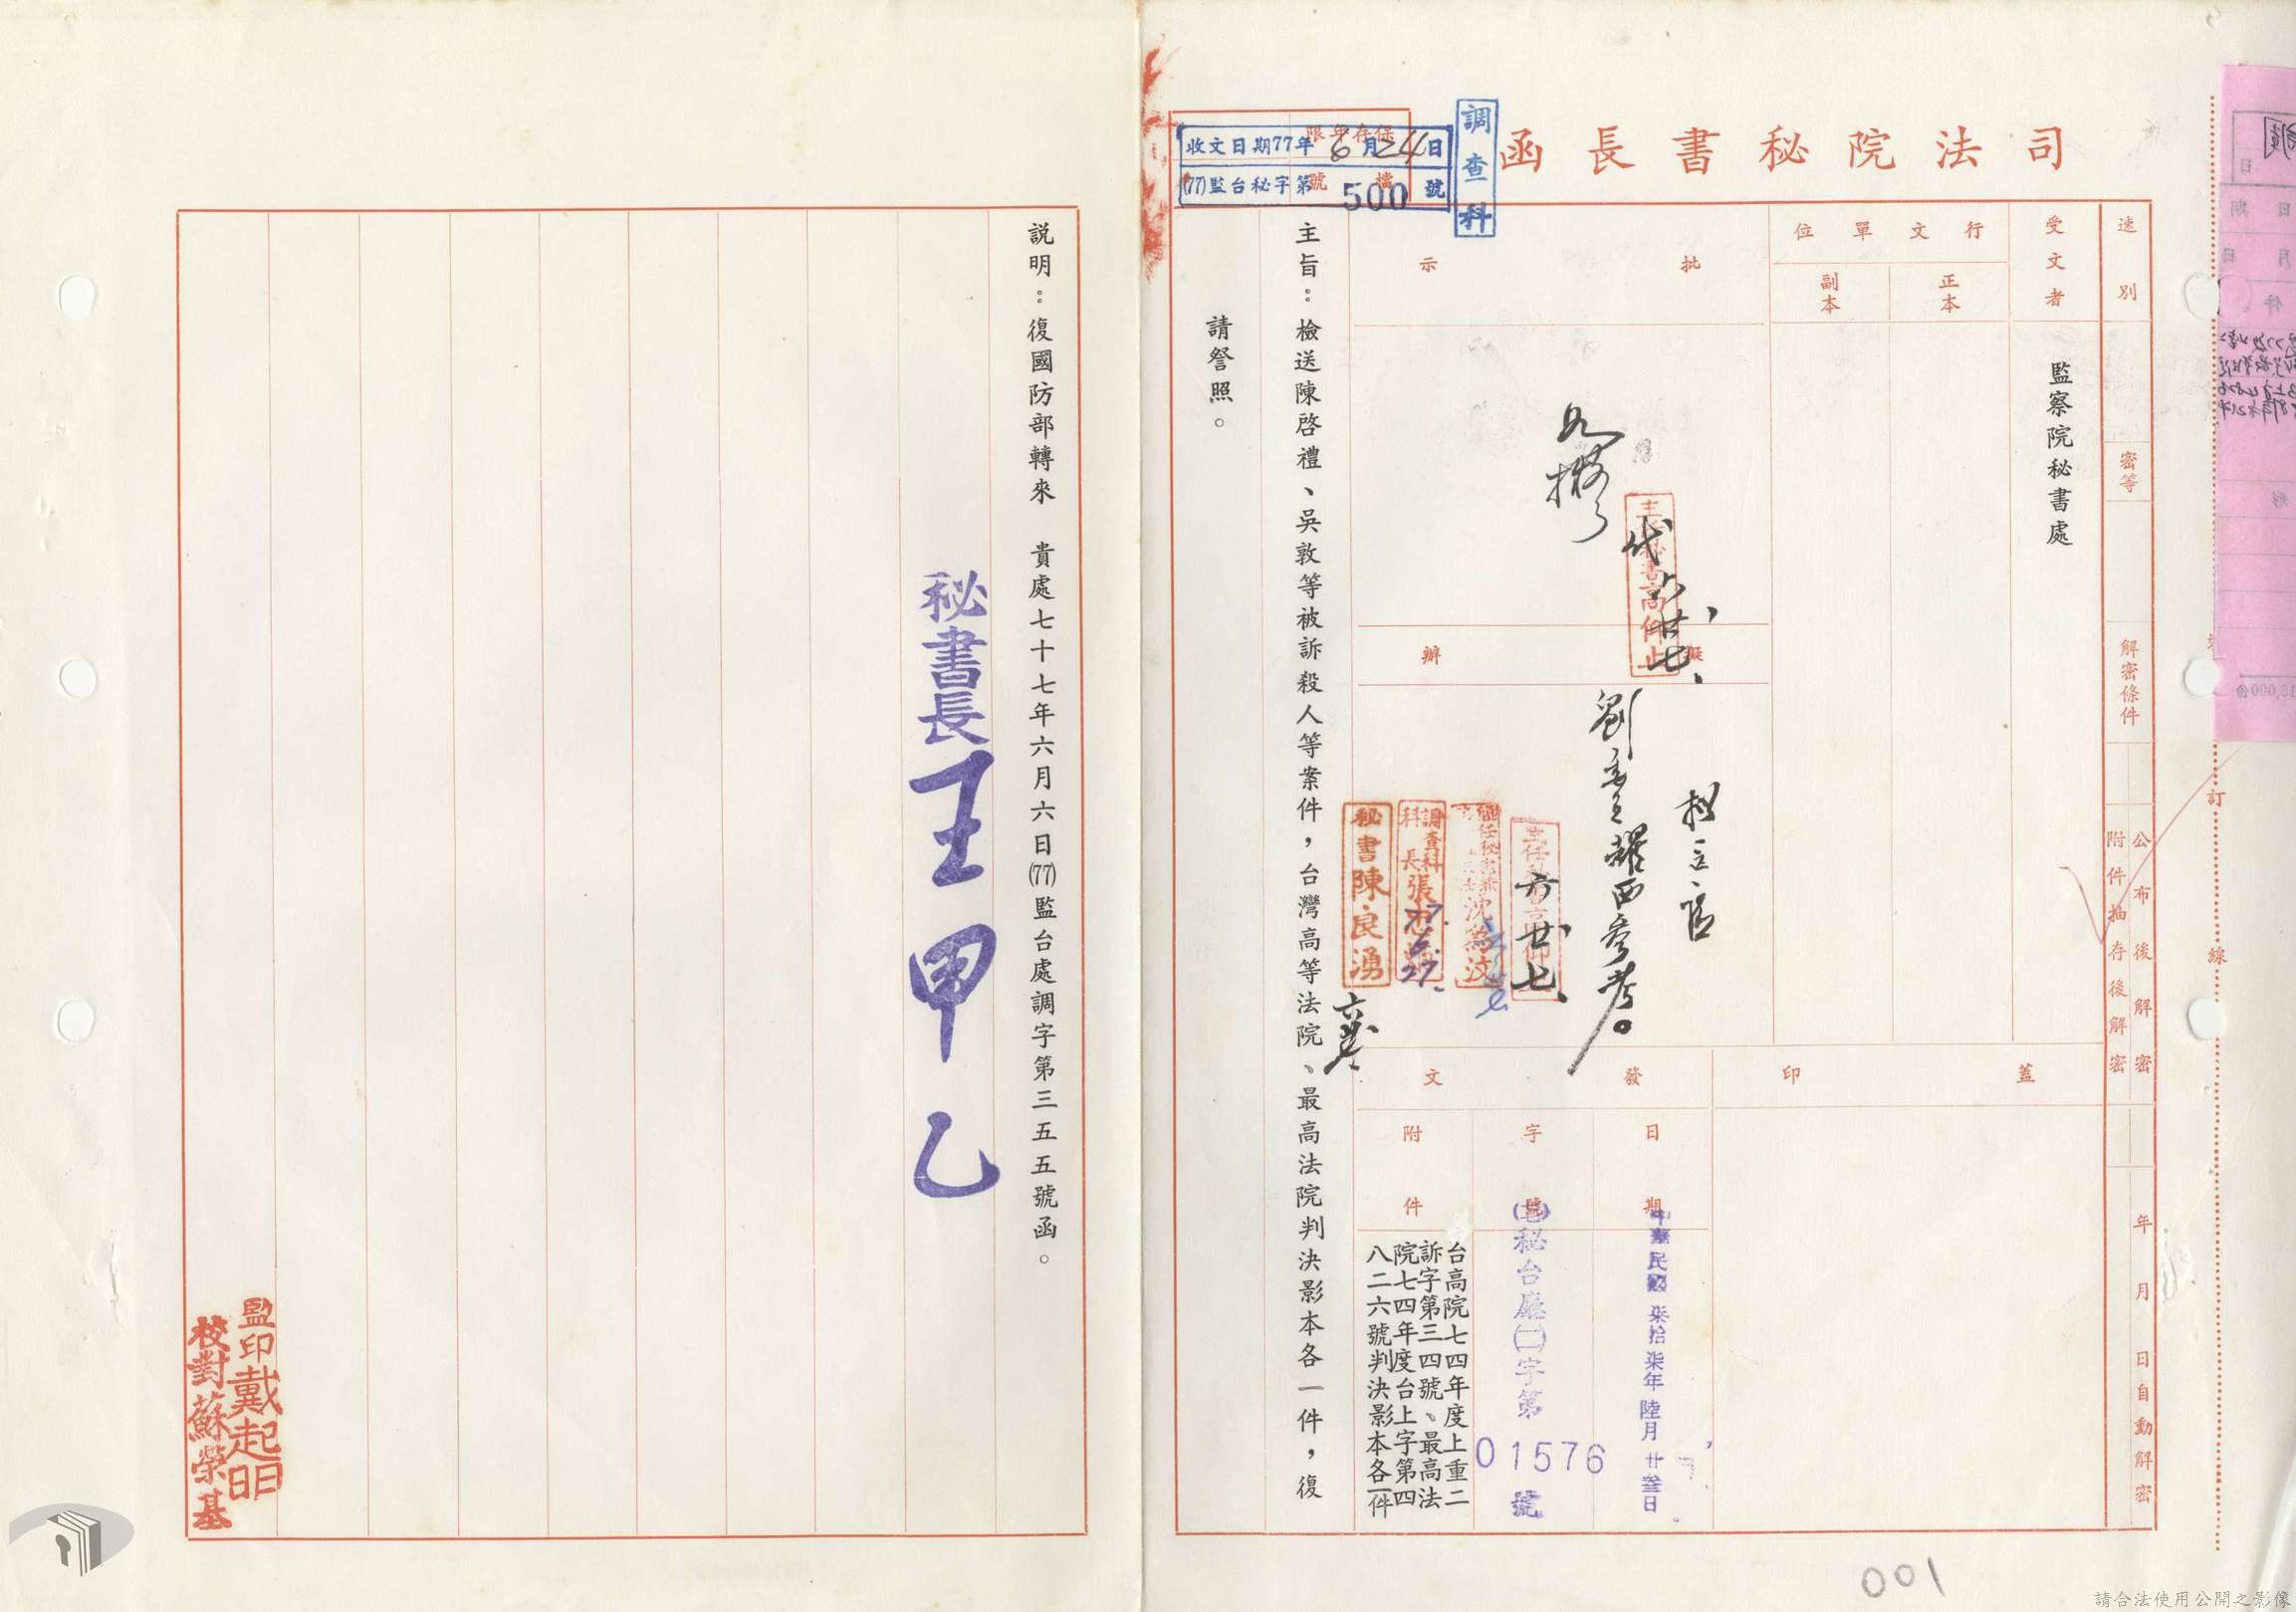 司法院秘書長函
調查科
保存年限
檔號
收文日期77年6月24日
(77)監台秘字第500號
速別
密等
解密條件
公布後解密
附件抽存後解密
年月日自動解密
受文者
監察院秘書處
行文單位
正本
副本
批示
代
六、廿七、
擬辦
劉委員耀西參考。
主任秘書高仰止
六廿七、
沈為汶
調查科科長張
77.6.27.
秘書陳良湧
蓋印
發文
日期
中華民國柒拾柒年陸月廿叁日
字號
(77)秘台廳(二)字第01576號
附件
台高院七四年度上重二
訴字第三四號、最高法
院七四年度台上字第四
八二六號判決影本各一件
主旨：檢送陳啓禮、吳敦等被訴殺人等案件，台灣高等法院、最高法院判決影本各一件，復
請詧照。
說明：復國防部轉來　貴處七十七年六月六日(77)監台處調字第三五五號函。
秘書長王甲乙
監印戴起明
校對蘇榮基
訂
線
001
請合法使用公開之影像